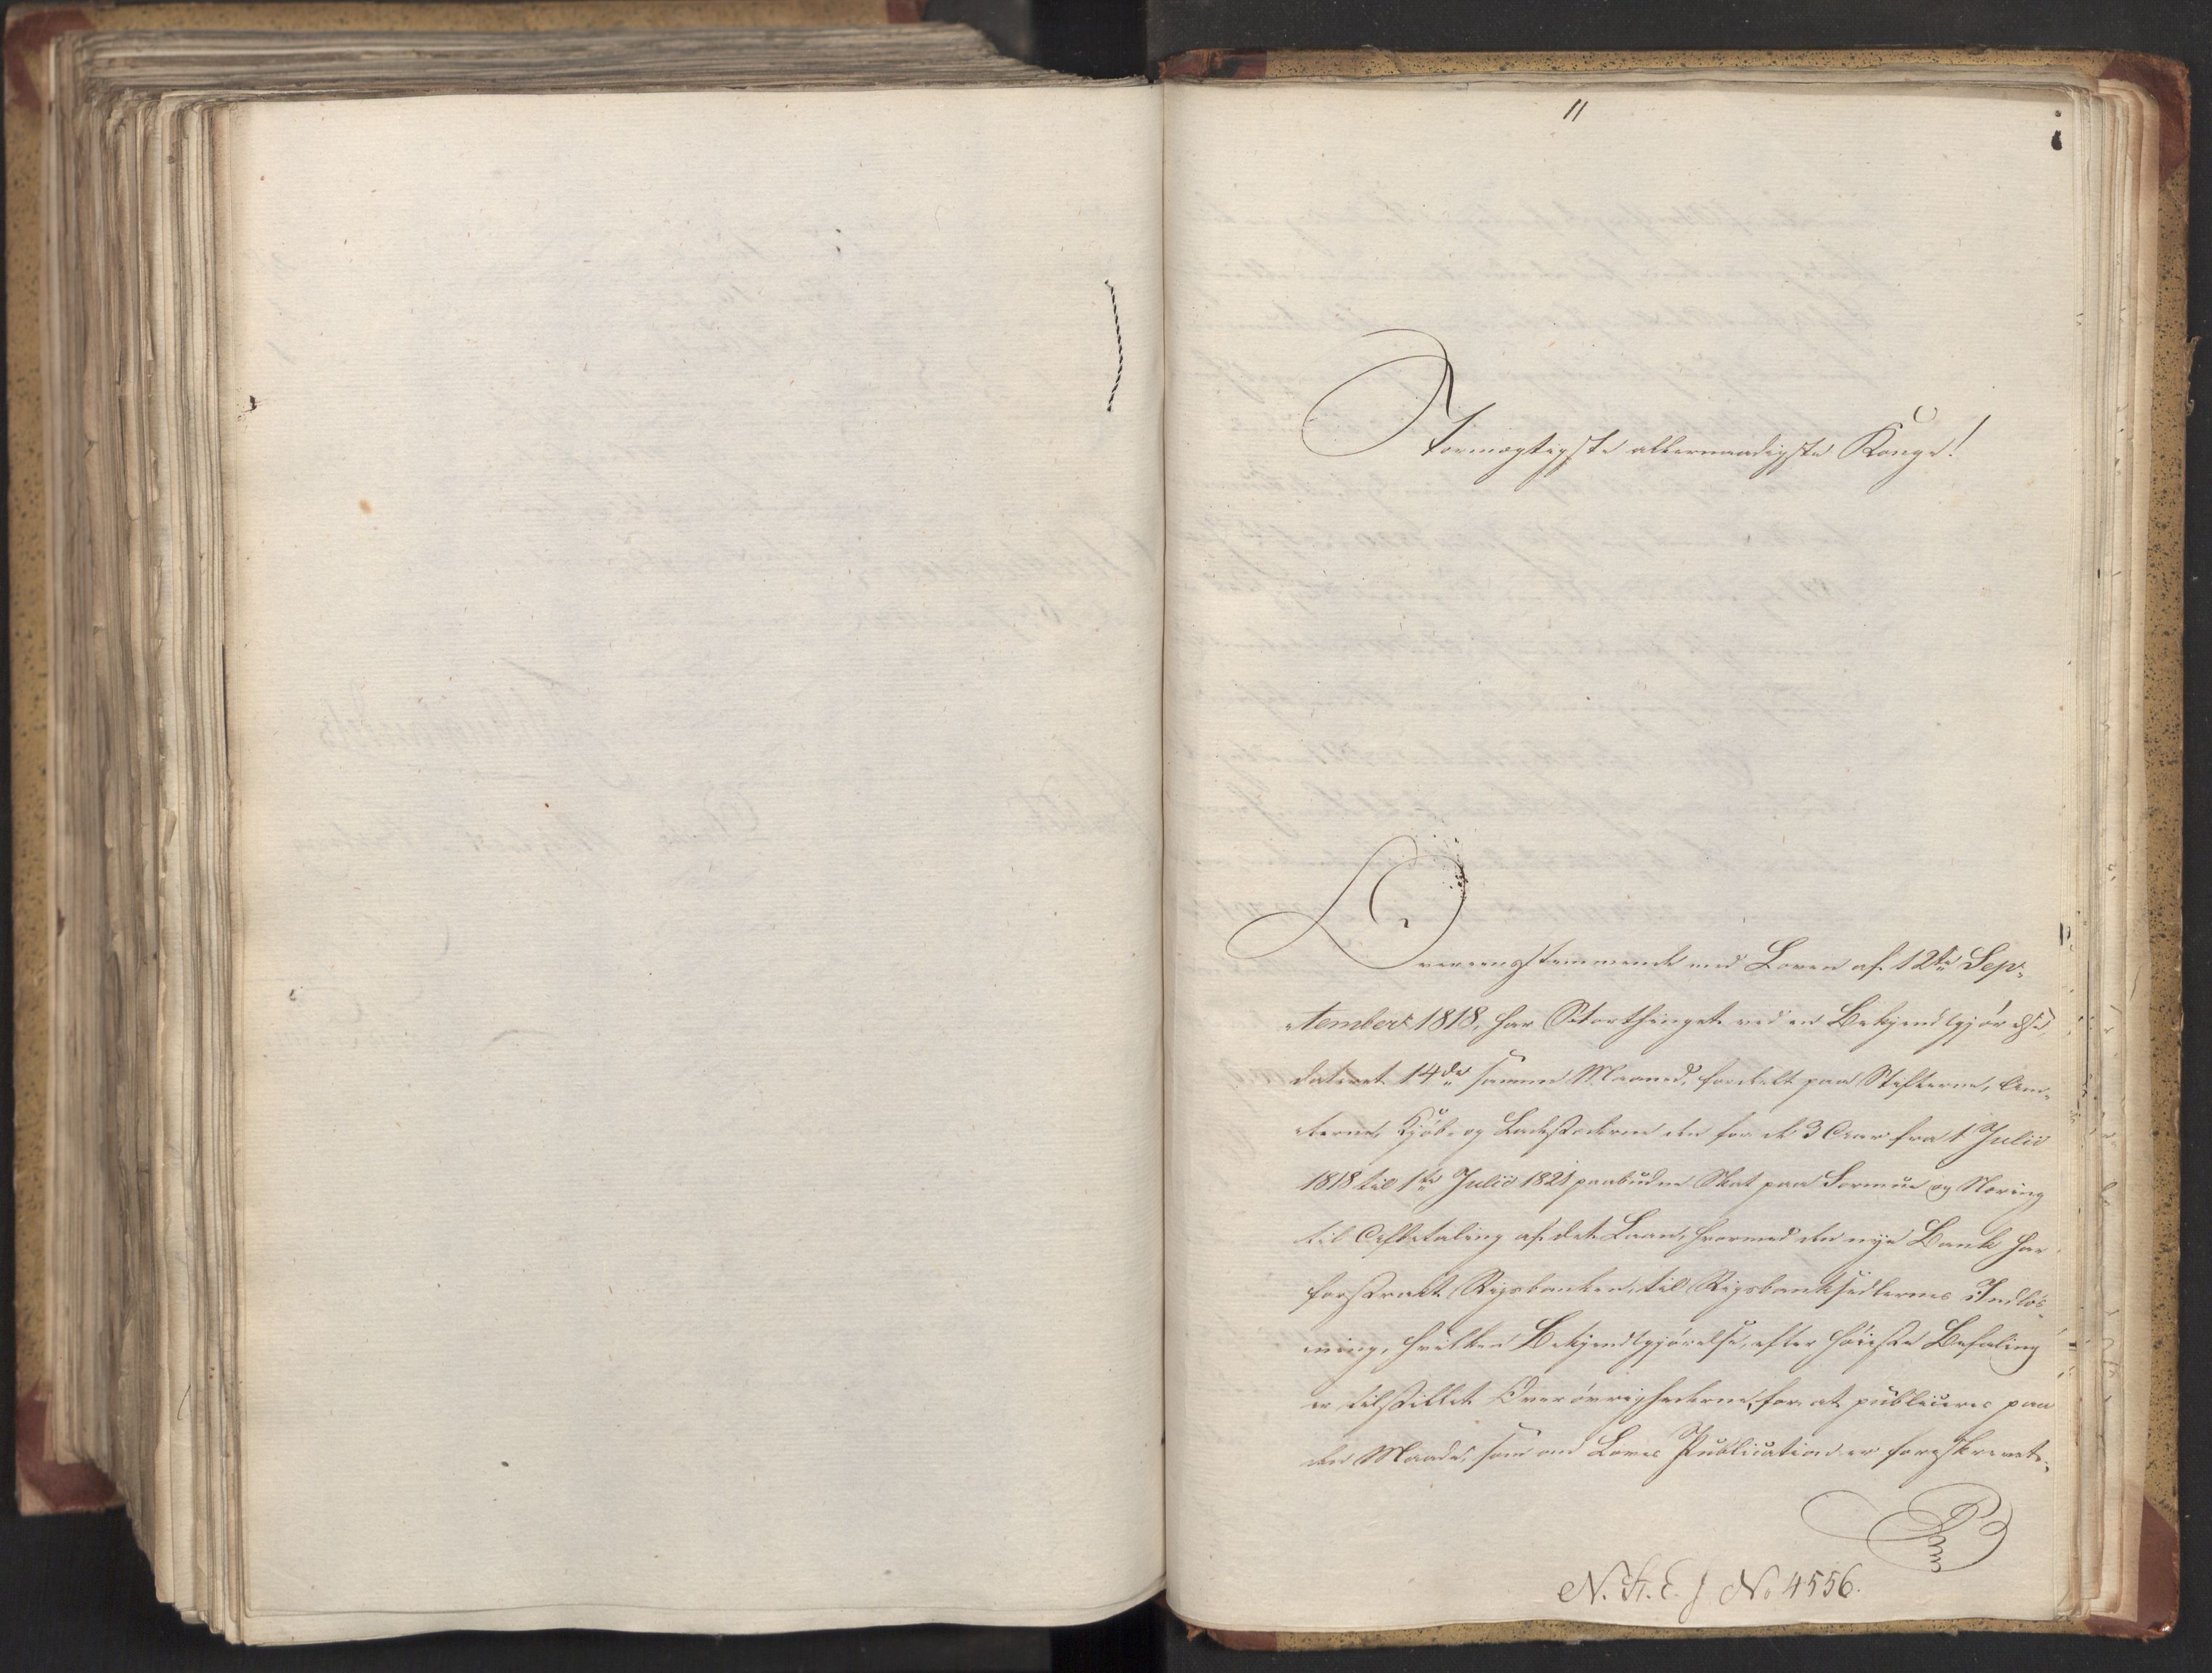 11
Stormægtigste allernaadigste Konge!
Overeensstemmende med Loven af 12te Sep-
tember 1818, har Storthinget ved en Bekjendtgjørelse,
dateret 14de samme Maaned, fordelt paa Stifterne, Am-
terne, Kjøb- og Ladestæderne den for de 3 Aar fra 1 Julii
1818 til 1ste Julii 1821 paabudne Skat paa Formue og Næring
til Afbetaling af det Laan, hvormed den nye Bank har
forstrakt Rigsbanken, til Rigsbanksedlernes Indløs-
ning, hvilken Bekjendtgjørelse, efter høieste Befaling
er tilstillet Overøvrighederne, for at publiceres paa
den Maade, som om Loves Publication er foreskrevet.
N. St. E. J No 4556.